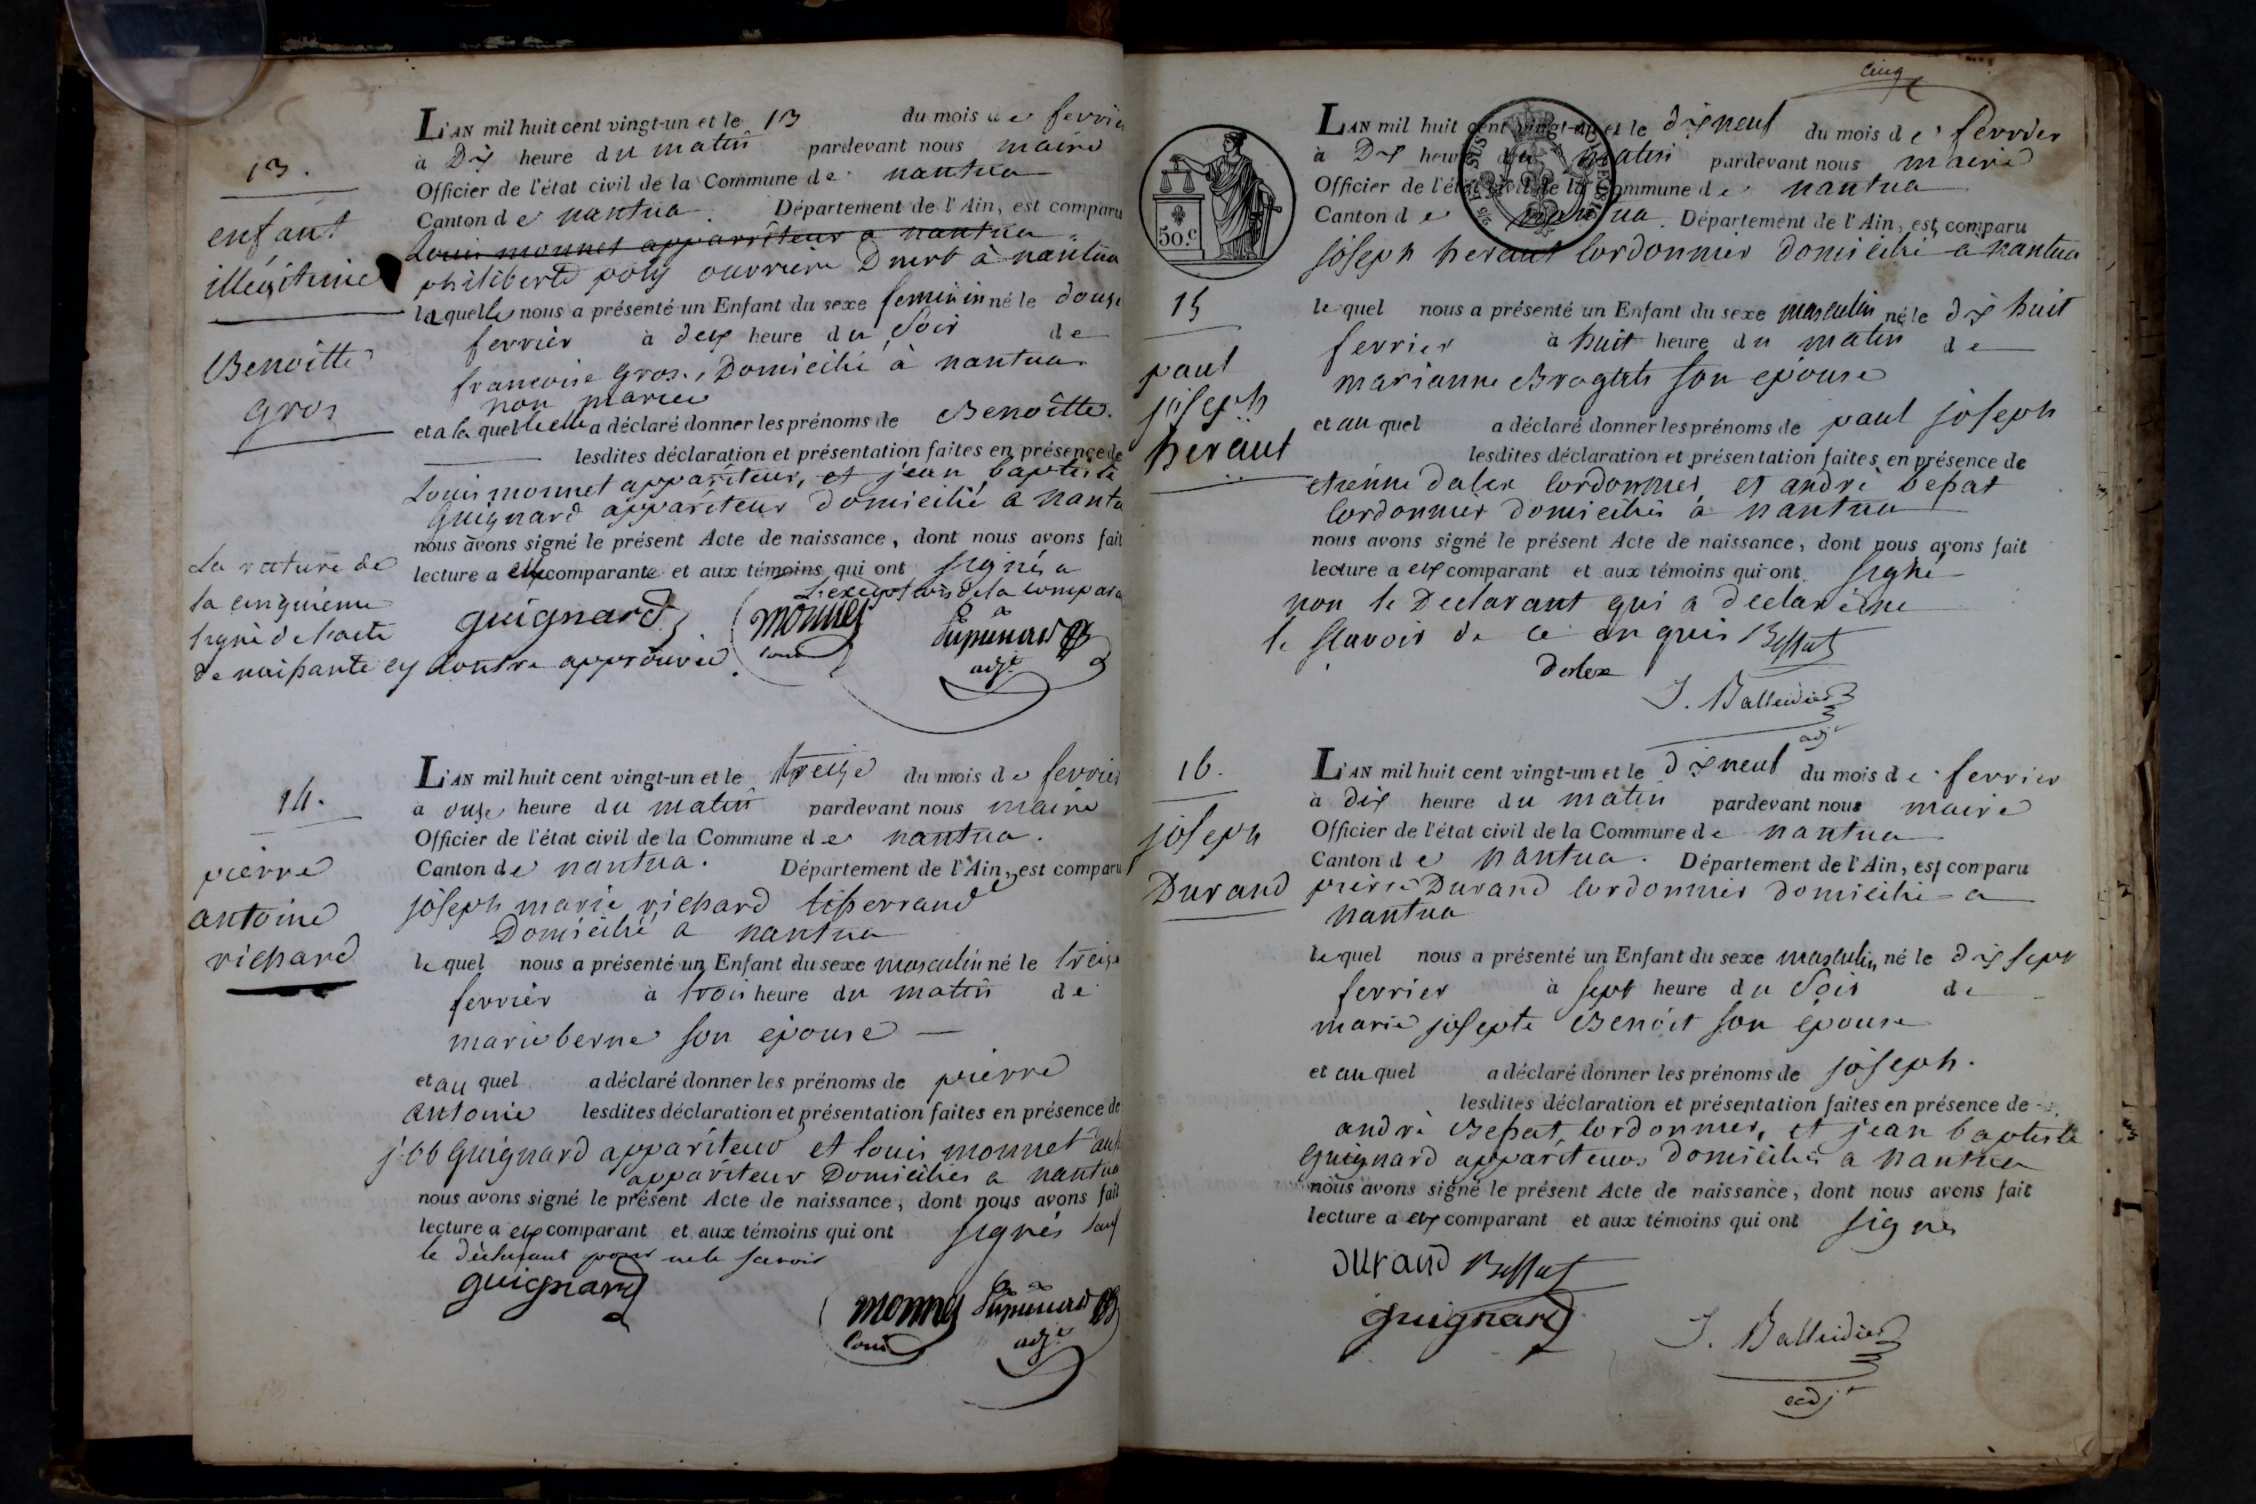 13.
enfant
illégitime
Benoitte
gros
L'AN mil huit cent vingt-un et le 13 du mois de fevrier
à Dix heure du matin pardevant nous maire
Officier de l'état civil de la Commune de nantua
Canton de nantua. Département de l'Ain, est comparu
Louis monnet apparriteur a nantua
philiberte poly ouvriere Duert à nantua
laquelle nous a présenté un Enfant du sexe feminin né le douze
fevrier à deux heure du Soir de
francoise gros, Domicilié à nantua
non mariée
et a la quelle elle a déclaré donner les prénoms de Benoitte.
lesdites déclaration et présentation faites en présence de
Louis monnet appariteur, et jean baptiste
guignard appariteur domicilié a nantua
nous avons signé le présent Acte de naissance, dont nous avons fait
lecture a eux comparante et aux témoins qui ont signés a
L'exception de la compara
La rature de
la cinquieme
ligne de l'acte
de naissante cy contre approuvée
guignard
monnet
louis
adjt
14.
pierre
antoine
richard
L'AN mil huit cent vingt-un et le treize du mois de fevrier
a onze heure du matin pardevant nous maire
Officier de l'état civil de la Commune de nantua.
Canton de nantua. Département de l'Ain, est comparu
joseph marie richard tisserand
Domicilié a nantua
le quel nous a présenté un Enfant du sexe masculin né le treize
fevrier à trois heure du matin de
marie berne son epouse
et au quel a déclaré donner les prénoms de pierre
antoine lesdites déclaration et présentation faites en présence de
j. bb guignard appariteur et louis monnet aussi
appariteur Domiciliés a nantua
nous avons signé le présent Acte de naissance, dont nous avons fait
lecture a eux comparant et aux témoins qui ont signés sauf
le déclarant pour ne le savoir
guignard
monnet
louis
adjt
cinq
50.c
15
paul
joseph
heraut
L'AN mil huit cent vingt-un et le dixneuf du mois de fevrier
à Dix heure du matin pardevant nous maire
Officier de l'état civil de la Commune de nantua
Canton de nantua. Département de l'Ain, est comparu
joseph heraut Cordonnier domicilié a nantua
le quel nous a présenté un Enfant du sexe masculin né le dix huit
fevrier à huit heure du matin de
marianne son epouse
et au quel a déclaré donner les prénoms de paul joseph
lesdites déclaration et présentation faites en présence de
etienne dalex Cordonnier et andré bessat
Cordonnier domiciliés à nantua
nous avons signé le présent Acte de naissance, dont nous avons fait
lecture a eux comparant et aux témoins qui ont signé
non le Declarant qui a declaré ne
le scavoir de ce en quis Bessat
dalex
J. Balleidier
adjt
16.
joseph
Durand
L'AN mil huit cent vingt-un et le dixneuf du mois de fevrier
à dix heure du matin pardevant nous maire
Officier de l'état civil de la Commune de nantua
Canton de nantua. Département de l'Ain, est comparu
pierre Durand Cordonnier domicilié a
nantua
le quel nous a présenté un Enfant du sexe masculin né le dix sept
fevrier à sept heure du Soir de
marie josepte Benoit son epouse
et au quel a déclaré donner les prénoms de joseph.
lesdites déclaration et présentation faites en présence de
andré Bessat, Cordonnier, et jean baptiste
guignard appariteur domiciliés a nantua
nous avons signé le présent Acte de naissance, dont nous avons fait
lecture a eux comparant et aux témoins qui ont signés
Durand Bessat
guignard
J. Balleidier
adjt